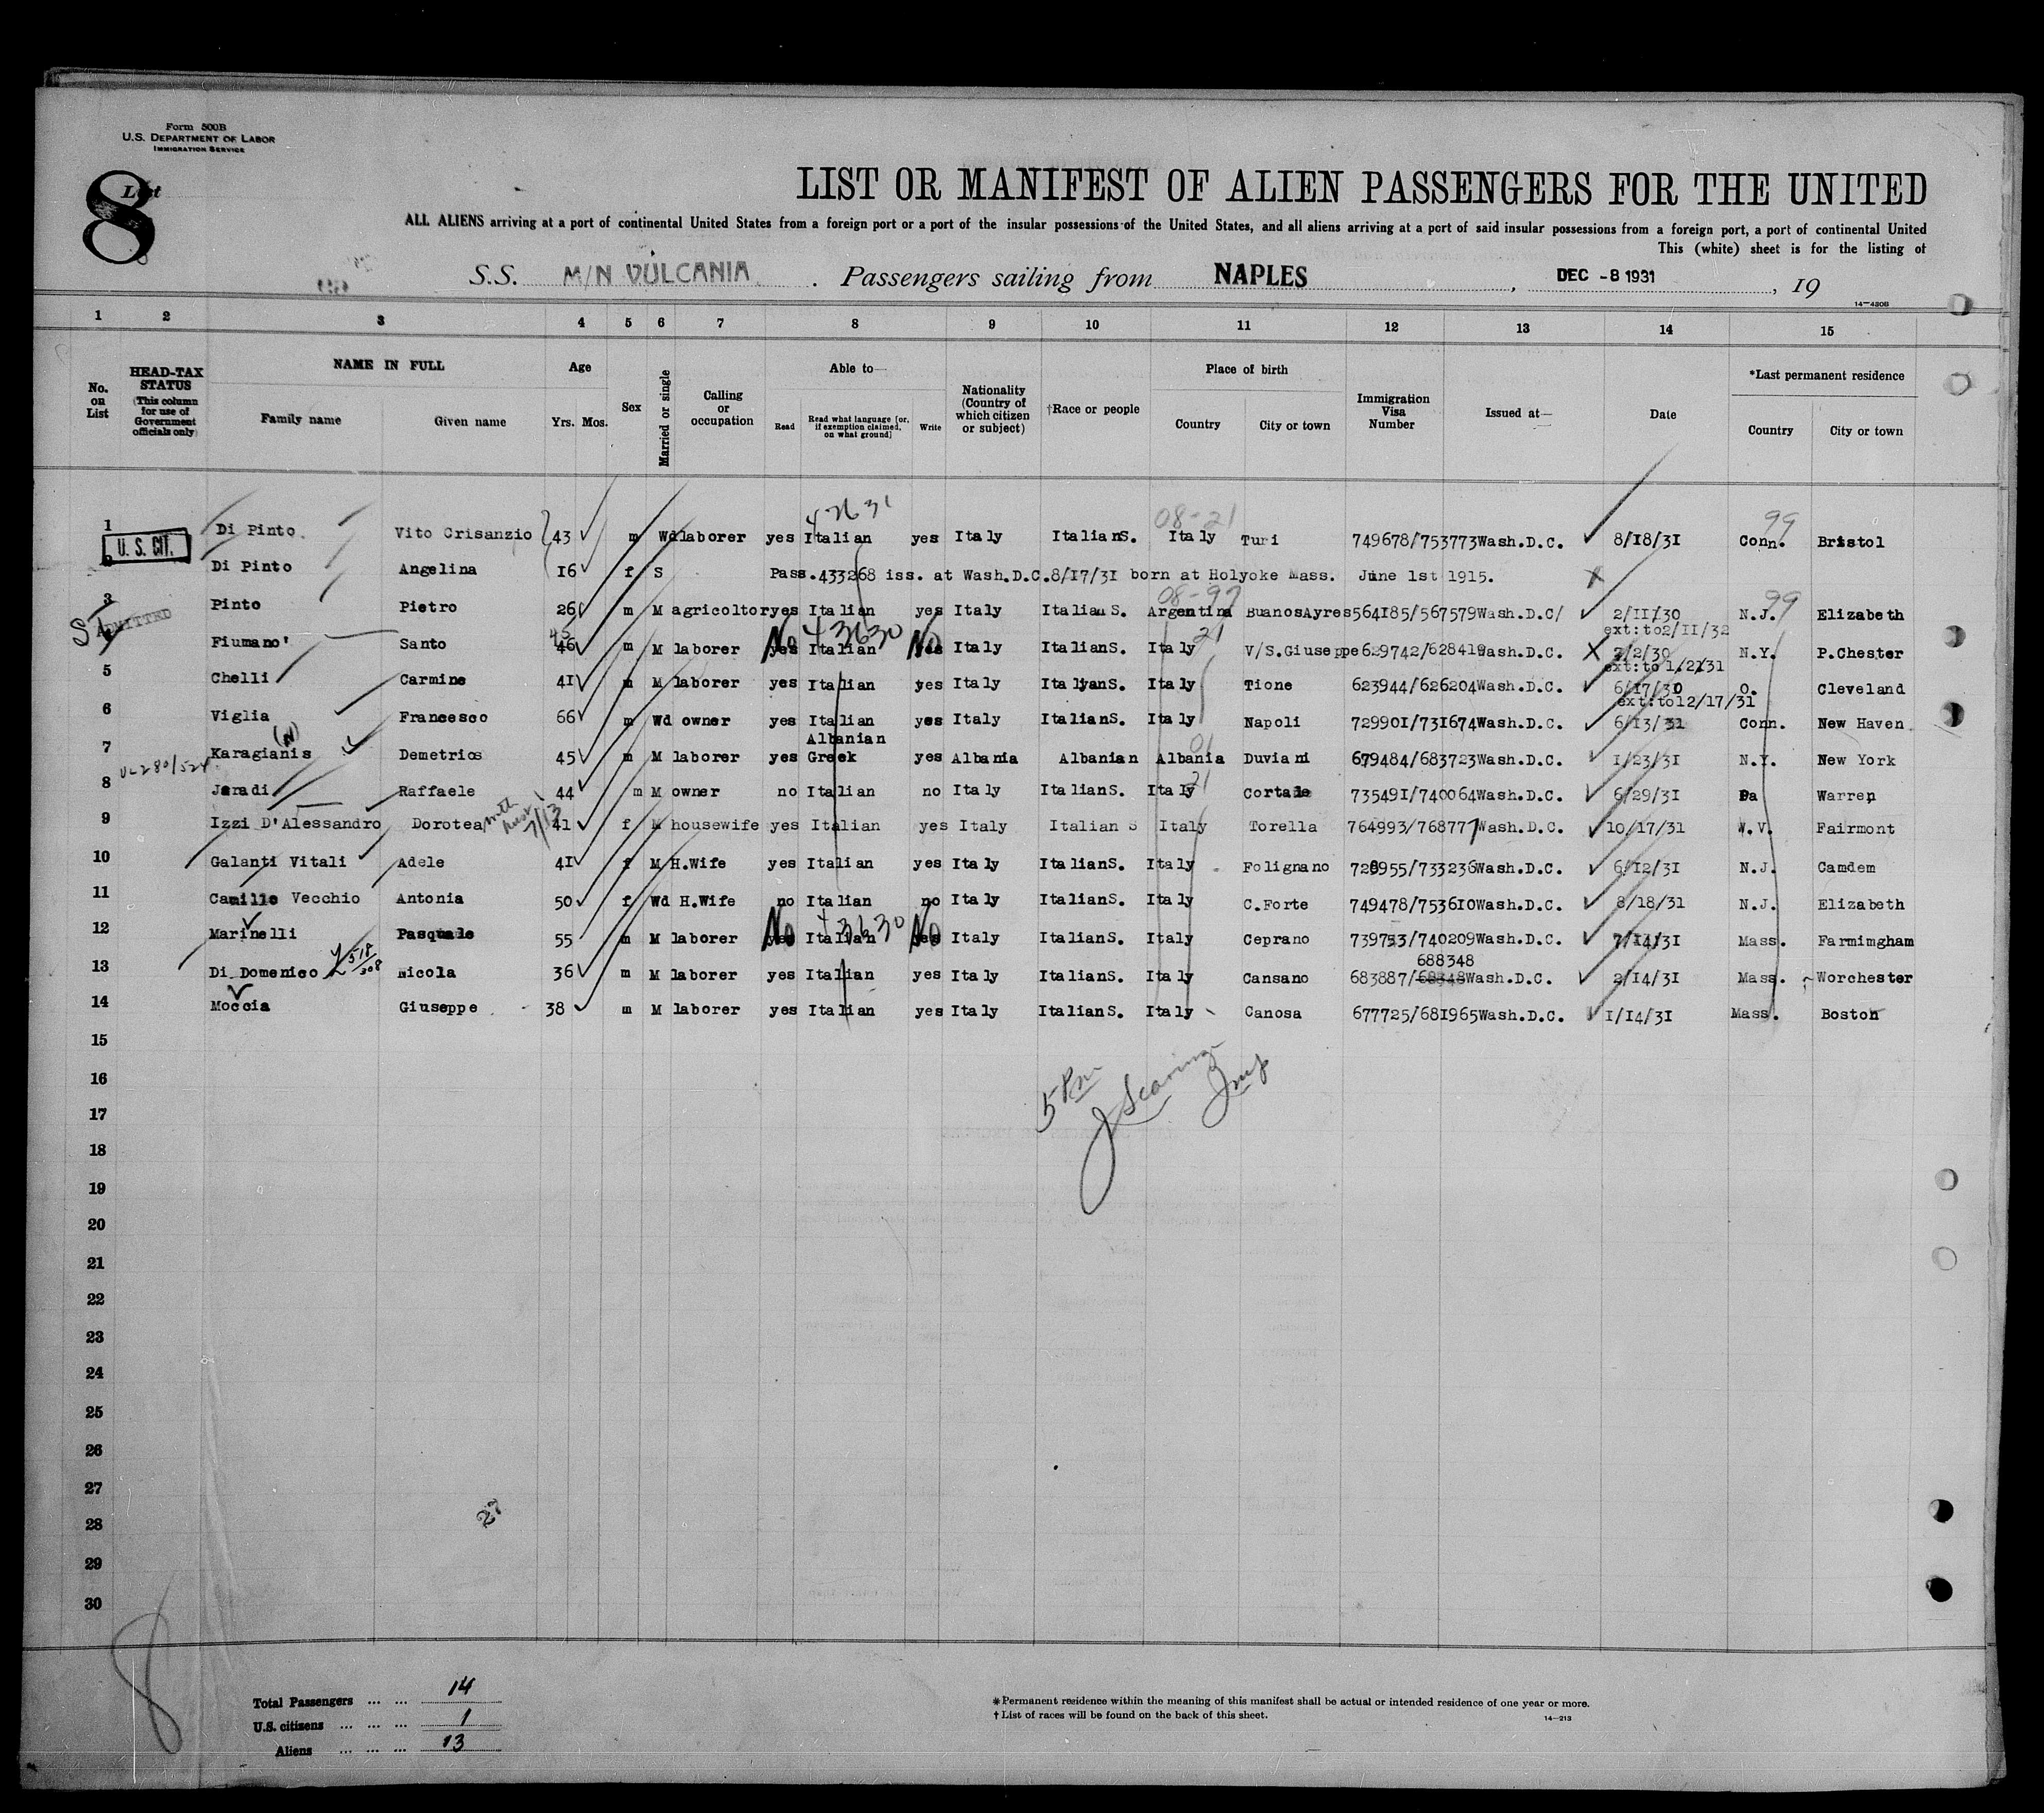 Form 500B
U.S. DEPARTMENT OF LABOR
IMMIGRATION SERVICE
List
8
LIST OR MANIFEST OF ALIEN PASSENGERS FOR THE UNITED
ALL ALIENS arriving at a port of continental United States from a foreign port or a port of the insular possessions of the United States, and all aliens arriving at a port of said insular possessions from a foreign port, a port of continental United
This (white) sheet is for the listing of
S.S. M/N VULCANIA. Passengers sailing from NAPLES, DEC -8 1931, 19
14-430B
1 2 3 4 5 6 7 8 9 10 11 12 13 14 15
No. on List
HEAD-TAX STATUS (This column for use of Government officials only)
NAME IN FULL
Family name Given name
Age
Yrs. Mos.
Sex
Married or single
Calling or occupation
Able to—
Read Read what language [or, if exemption claimed, on what ground] Write
Nationality (Country of which citizen or subject)
†Race or people
Place of birth
Country City or town
Immigration Visa Number
Issued at—
Date
*Last permanent residence
Country City or town
47631 08-21 99
1 Di Pinto Vito Crisanzio 43 m Wd laborer yes Italian yes Italy ItalianS. Italy Turi 749678/753773 Wash.D.C. 8/18/31 Conn. Bristol
U. S. CIT.
Di Pinto Angelina 16 f S Pass.433268 iss. at Wash.D.C.8/17/31 born at Holyoke Mass. June 1st 1915.
08-97 99
3 Pinto Pietro 26 m M agricoltor yes Italian yes Italy Italian S. Argentina BuanosAyres 564185/567579 Wash.D.C/ 2/11/30 N.J. Elizabeth
ext:to2/11/32
ADMITTED
45 No 43630 No 21
Fiumano' Santo 46 m M laborer yes Italian yes Italy ItalianS. Italy V/S.Giuseppe 629742/628419 Wash.D.C. 2/2/30 N.Y. P.Chester
ext:to 1/2/31
5 Chelli Carmine 41 m M laborer yes Italian yes Italy ItalyanS. Italy Tione 623944/626204 Wash.D.C. 6/17/30 O. Cleveland
ext:to12/17/31
6 Viglia Francesco 66 m Wd owner yes Italian yes Italy ItalianS. Italy Napoli 729901/731674 Wash.D.C. 6/13/31 Conn. New Haven
(N) Albanian 01
7 Karagianis Demetrios 45 m M laborer yes Greek yes Albania Albanian Albania Duviani 679484/683723 Wash.D.C. 1/23/31 N.Y. New York
21
8 Jaradi Raffaele 44 m M owner no Italian no Italy ItalianS. Italy Cortale 735491/740064 Wash.D.C. 6/29/31 Pa Warren
9 Izzi D'Alessandro Dorotea 41 f M housewife yes Italian yes Italy Italian S Italy Torella 764993/768777 Wash.D.C. 10/17/31 W.V. Fairmont
10 Galanti Vitali Adele 41 f M H.Wife yes Italian yes Italy ItalianS. Italy Folignano 728955/733236 Wash.D.C. 6/12/31 N.J. Camdem
11 Camillo Vecchio Antonia 50 f Wd H.Wife no Italian no Italy ItalianS. Italy C.Forte 749478/753610 Wash.D.C. 8/18/31 N.J. Elizabeth
No 43630 No
12 Marinelli Pasquale 55 m M laborer yes Italian yes Italy ItalianS. Italy Ceprano 739753/740209 Wash.D.C. 7/14/31 Mass. Farmimgham
688348
13 Di Domenico Nicola 36 m M laborer yes Italian yes Italy ItalianS. Italy Cansano 683887/68348 Wash.D.C. 2/14/31 Mass. Worchester
14 Moccia Giuseppe 38 m M laborer yes Italian yes Italy ItalianS. Italy Canosa 677725/681965 Wash.D.C. 1/14/31 Mass. Boston
15
16
17
18
19
20
21
22
23
24
25
26
27
28
29
30
27
8
Total Passengers ... ... 14
U.S. citizens ... ... ... 1
Aliens ... ... ... 13
*Permanent residence within the meaning of this manifest shall be actual or intended residence of one year or more.
†List of races will be found on the back of this sheet. 14-213